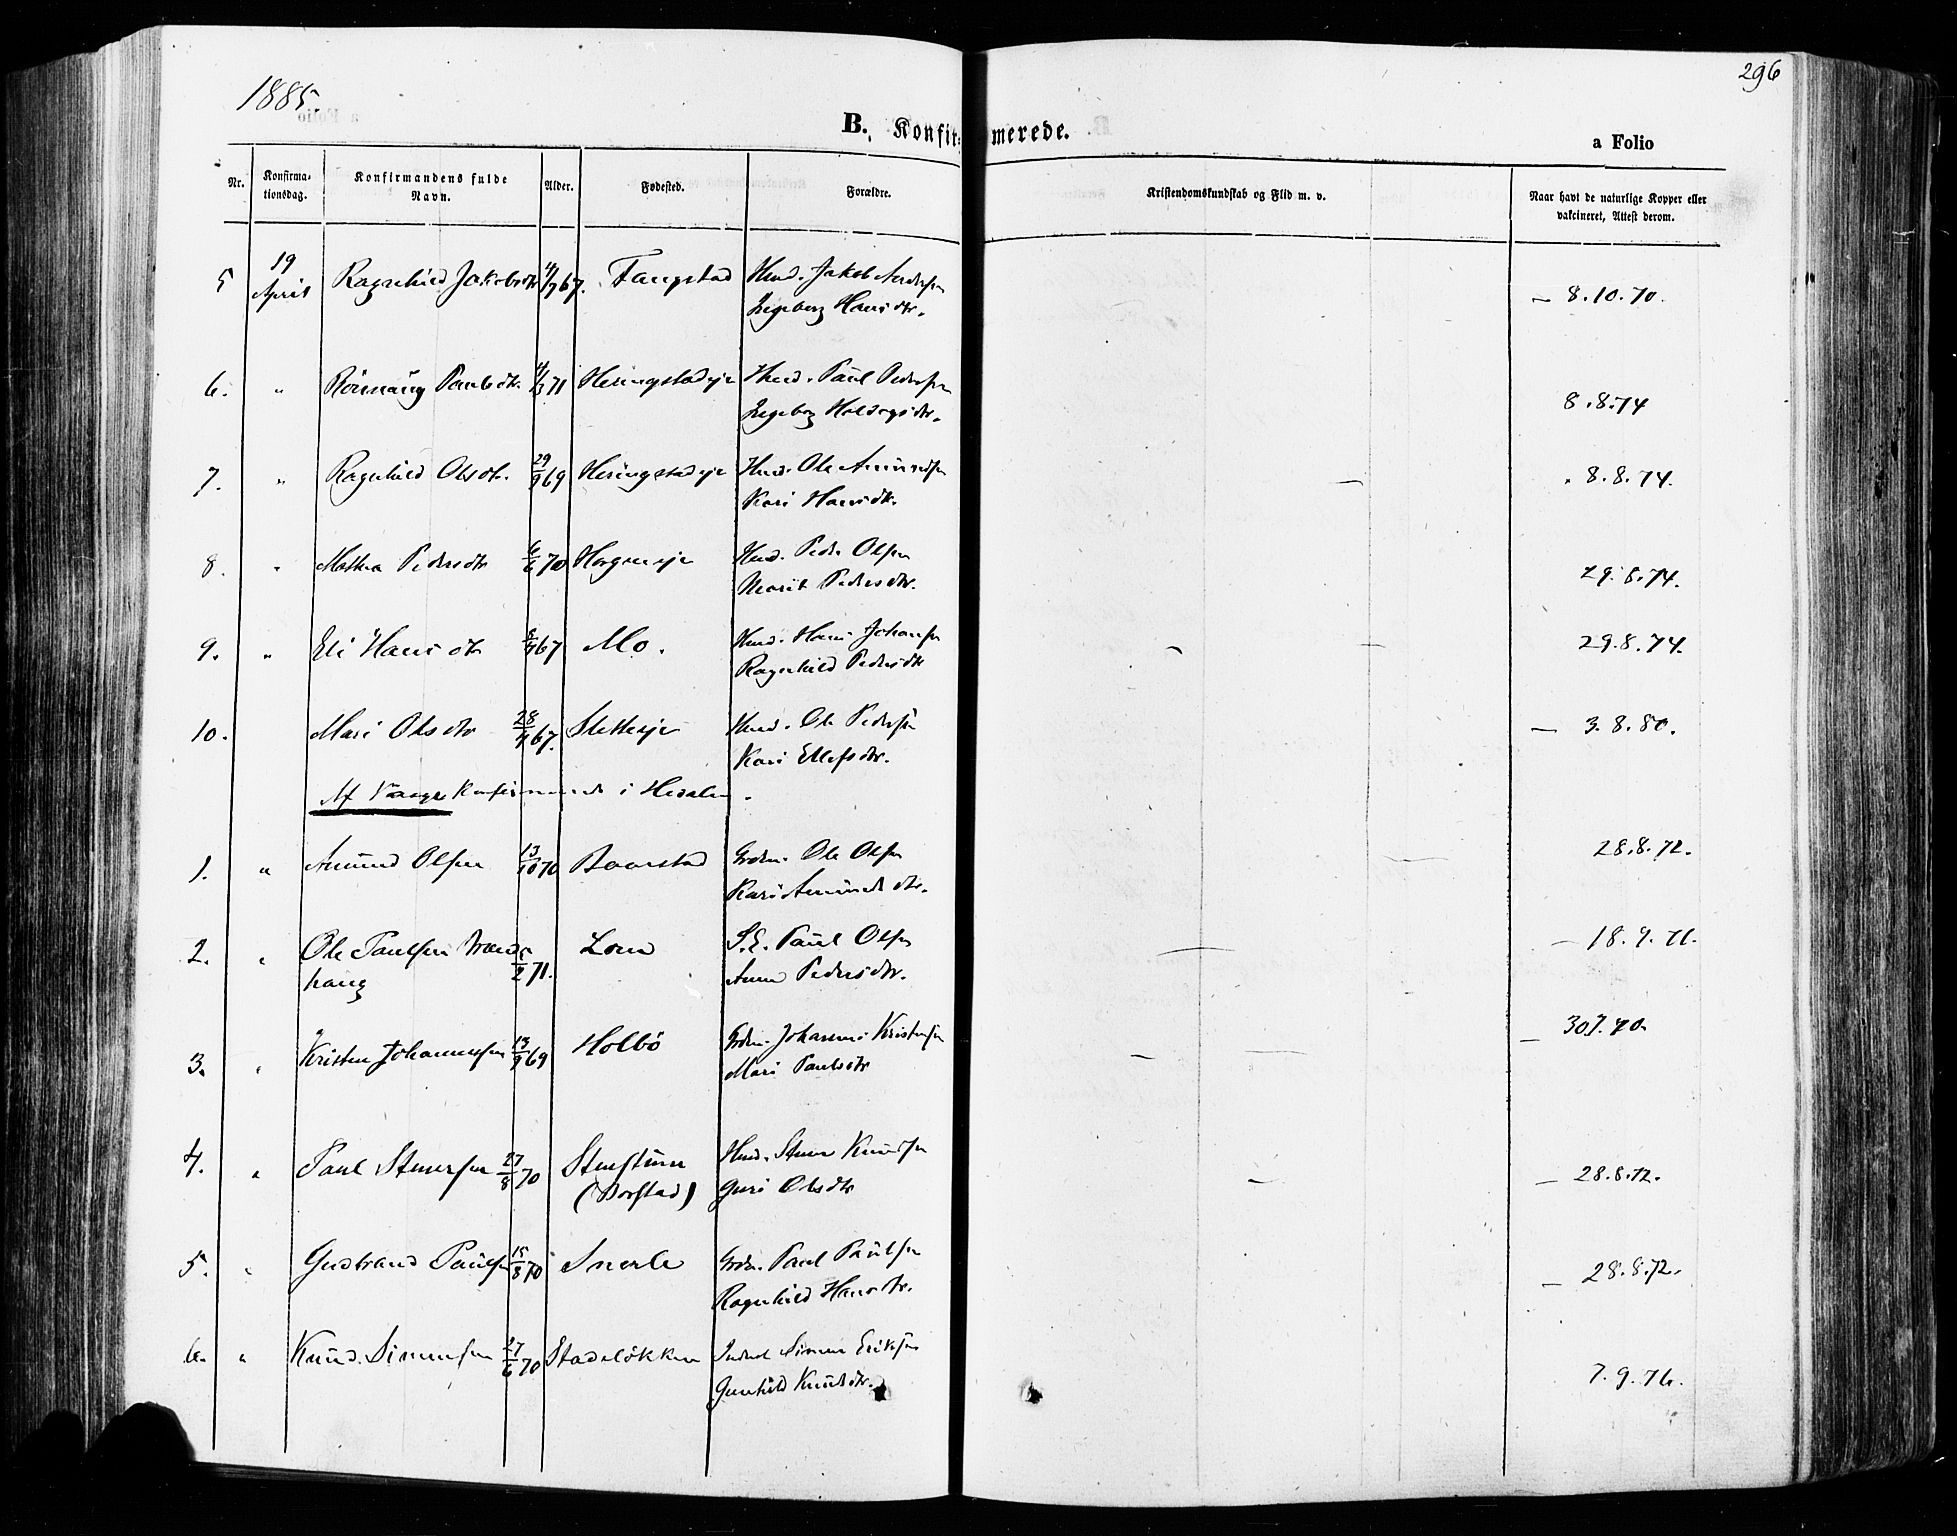 1885
296
B. Konfirmerede.
a Folio
Nr.
Konfirmationsdag.
Konfirmandens fulde Navn.
Alder.
Fødested.
Forældre.
Kristendomskundskab og Flid m. v.
Naar havt de naturlige Kopper eller vakcineret, Attest derom.
5 19 April Ragnhild Jakobsdtr 4/7 67. Fangstad Husd. Jakob Andersen — 8.10.70.
Ingeborg Hansdtr.
6. " Rönnaug Paulsdtr. 4/3 71 Heringstadeje Husd. Paul Pedersen 8.8.74
Ingeborg
7. " Ragnhild Olsdtr. 29/9 69 Heringstadeje Husd. Ole Amundsen " 8.8.74.
Kari Hansdtr.
8. " Mathea Pedersdtr 6/6 70 Husd. Peder Olsen 29.8.74.
Marit Pedersdtr.
9. " Eli Hansdtr 67 Mo. Husd. Hans Johansen 29.8.74.
Ragnhild Pedersdtr
10. Mari Olsdtr 28/9 67. Sletteeje Husd. Ole Pedersen — 3.8.80.
Kari Ellefsdtr.
Af Vaage i Hedalen.
1. " Amund Olsen 13/10 70 Baarstad Grdm. Ole Olsen 28.8.72.
Kari Amundsdtr.
2. " Ole Paulsen /2 71. Lom S.E. Paul Olsen — 18.9.71.
haug Anne Pedersdtr.
3. " Kristen Johannessen 13/9 69 Holbö Grdm. Johannes Kristensen — 30.7.70.
Mari Paulsdtr
4. " Paul Stenersen 27/8 70 Husd. Stener Knudsen — 28.8.72.
(Borstad) Guri Olsdtr
5. " Gudbrand Paulsen 15/8 70 Snerle Grdm. Paul Paulsen — 28.8.72.
Ragnhild Hansdtr.
6. " Knud Simensen 27/6 70 Stadelökken Simen Eriksen 7.9.76.
Gunhild Knudsdtr.